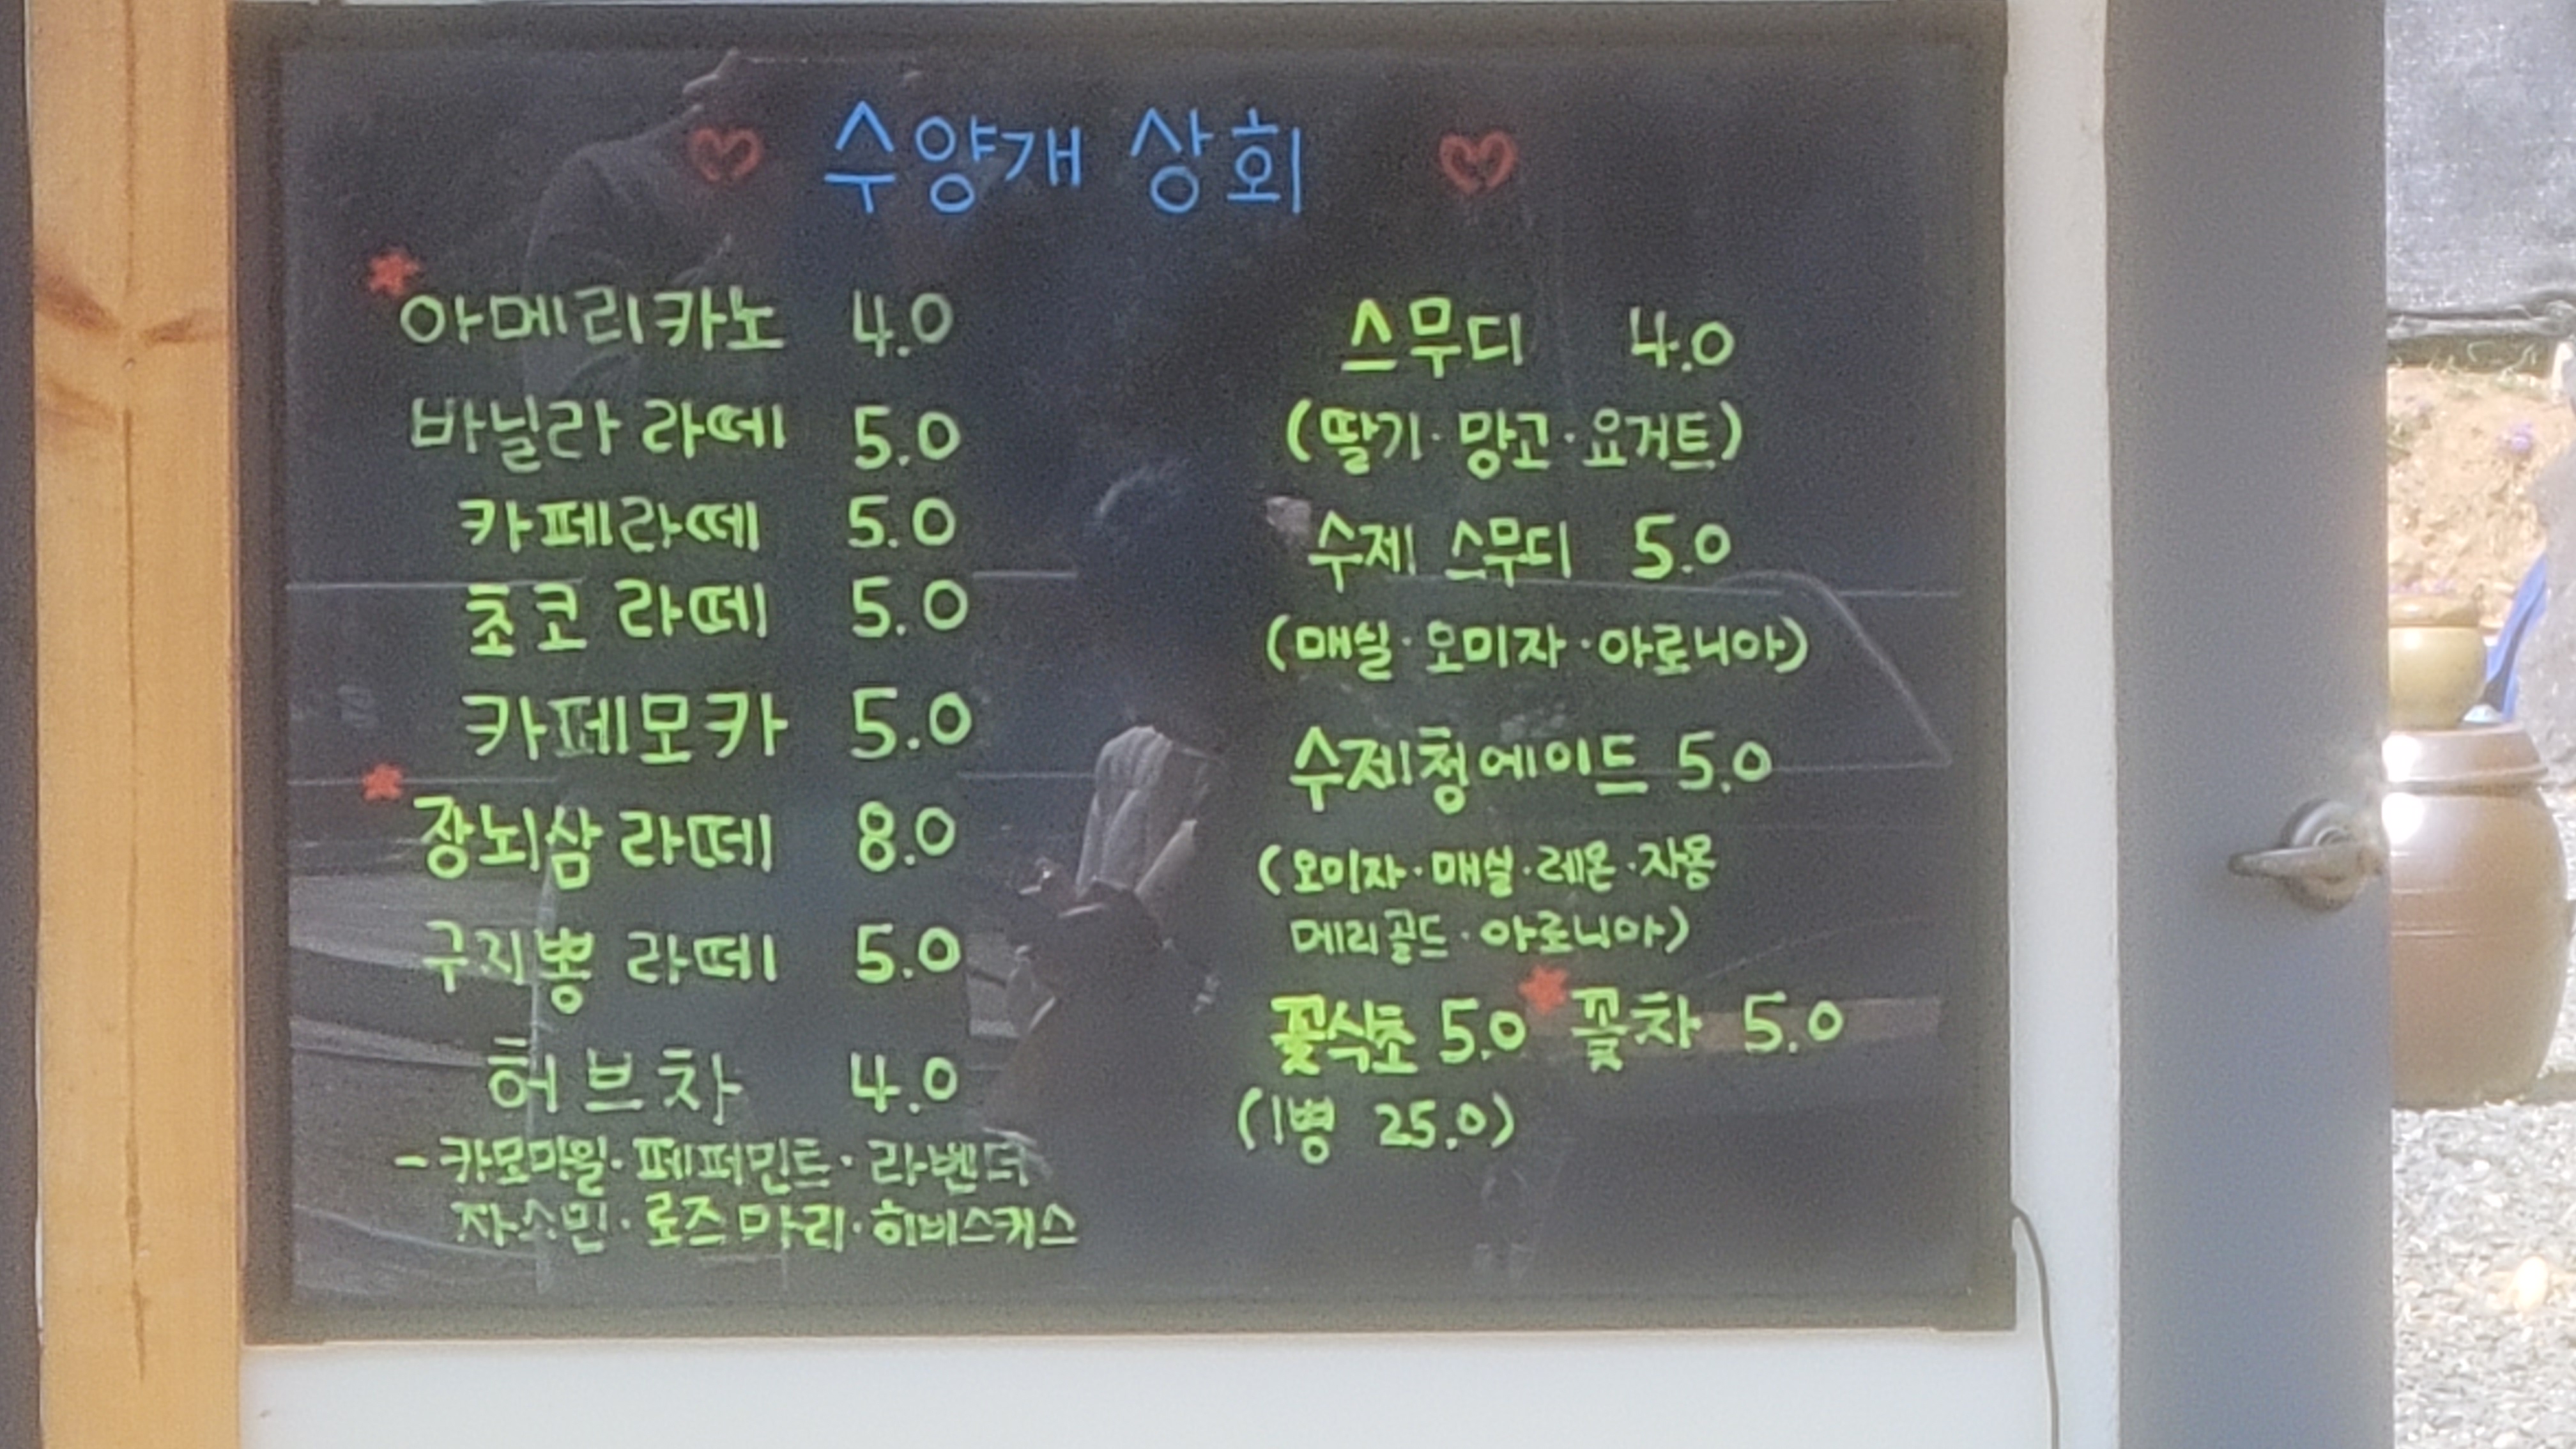 수양개 상회
아메리카노 4.0
바닐라 라떼 5.0
카페라떼 5.0
초코 라떼 5.0
카페모카 5.0
장뇌삼 라떼 8.0
구지뽕 라떼 5.0
허브차 4.0
-카모마일·페퍼민트·라벤더
쟈스민·로즈마리·히비스커스
스무디 4.0
(딸기·망고·요거트)
수제 스무디 5.0
(매실·오미자·아로니아)
수제청에이드 5.0
(오미자·매실·레몬·자몽
메리골드·아로니아)
꽃식초 5.0 꽃차 5.0
(1병 25.0)